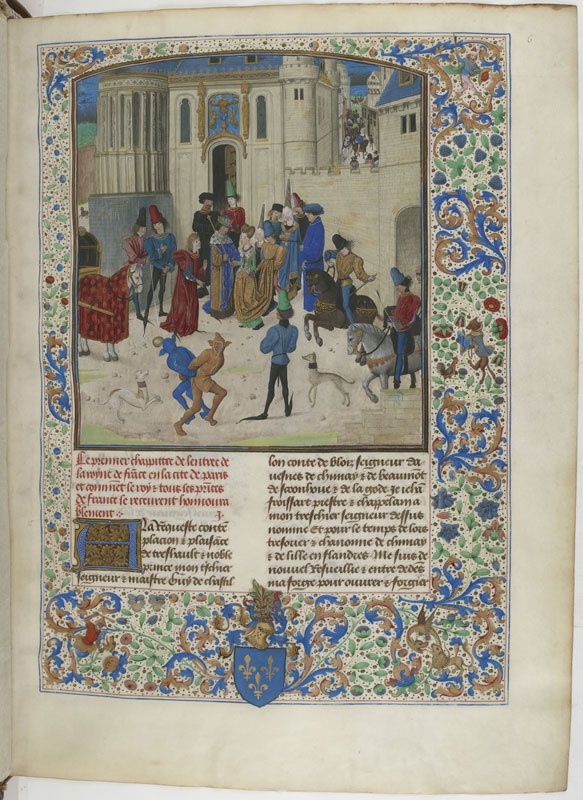 6
Le premier chapittre de lentree de
la royne de frāce en la cite de paris
et commēt le roy & tous les prīces
de france le receurent honnoura
blement
A La requeste contē
placion & plaisāce
de treshault & noble
prince mon tscher
seigneur & maistre Guy de chastil
lon conte de blois seigneur da
uesnes de chimay & de beaumōt
de & de la gode Je iehā
froissart prestre & chapelain a
mon treschier seigneur dessus
nomme Et pour le temps de lors
tresorier & chanonne de chimay
et de lille en flandres Me suis de
nouuel resueillie & entre dedēs
ma forge pour ouurer & forgier